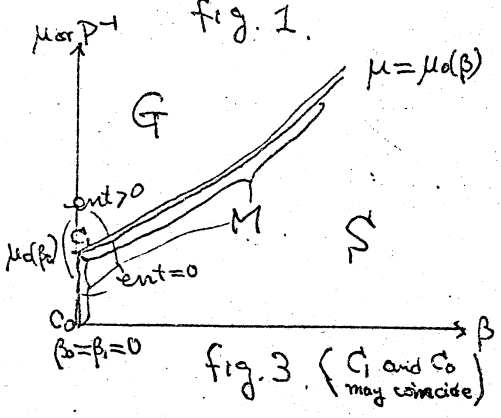 fig. 1.
μ or P⁻¹
μ = μ₀(β)
G
ent>0
C₁
M
S
μ₀(β₀)
ent=0
C₀
β
β₀=β₁=0
fig. 3. (C₁ and C₀
may coincide)